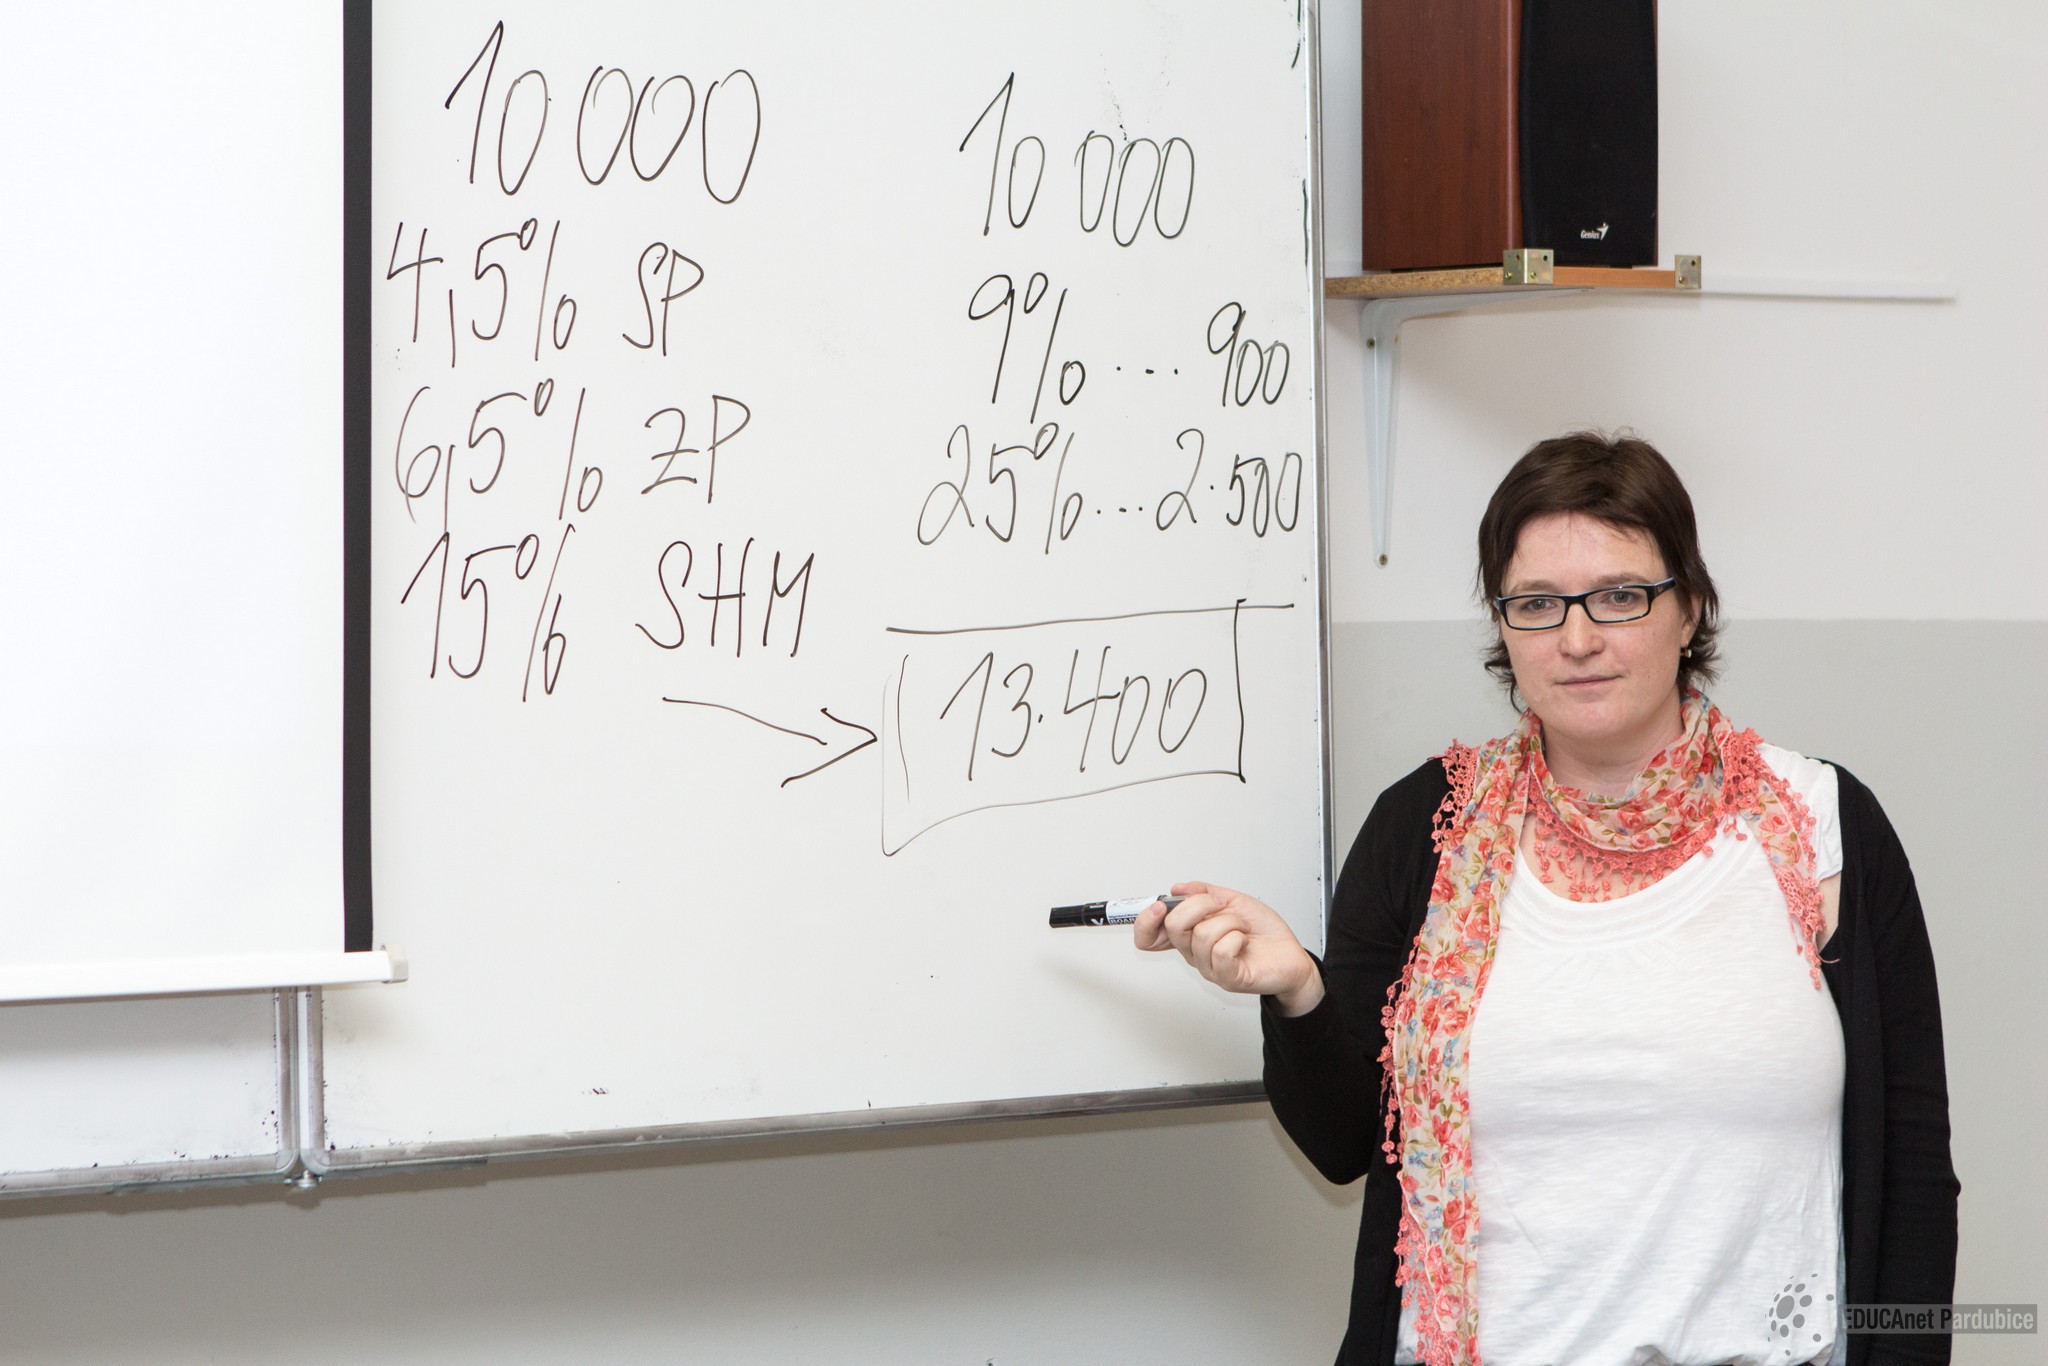 10 000
4,5% SP
6,5% ZP
15% SHM
10 000
9% ... 900
25% ... 2.500
13.400
Genius
BOAR
EDUCAnet Pardubice